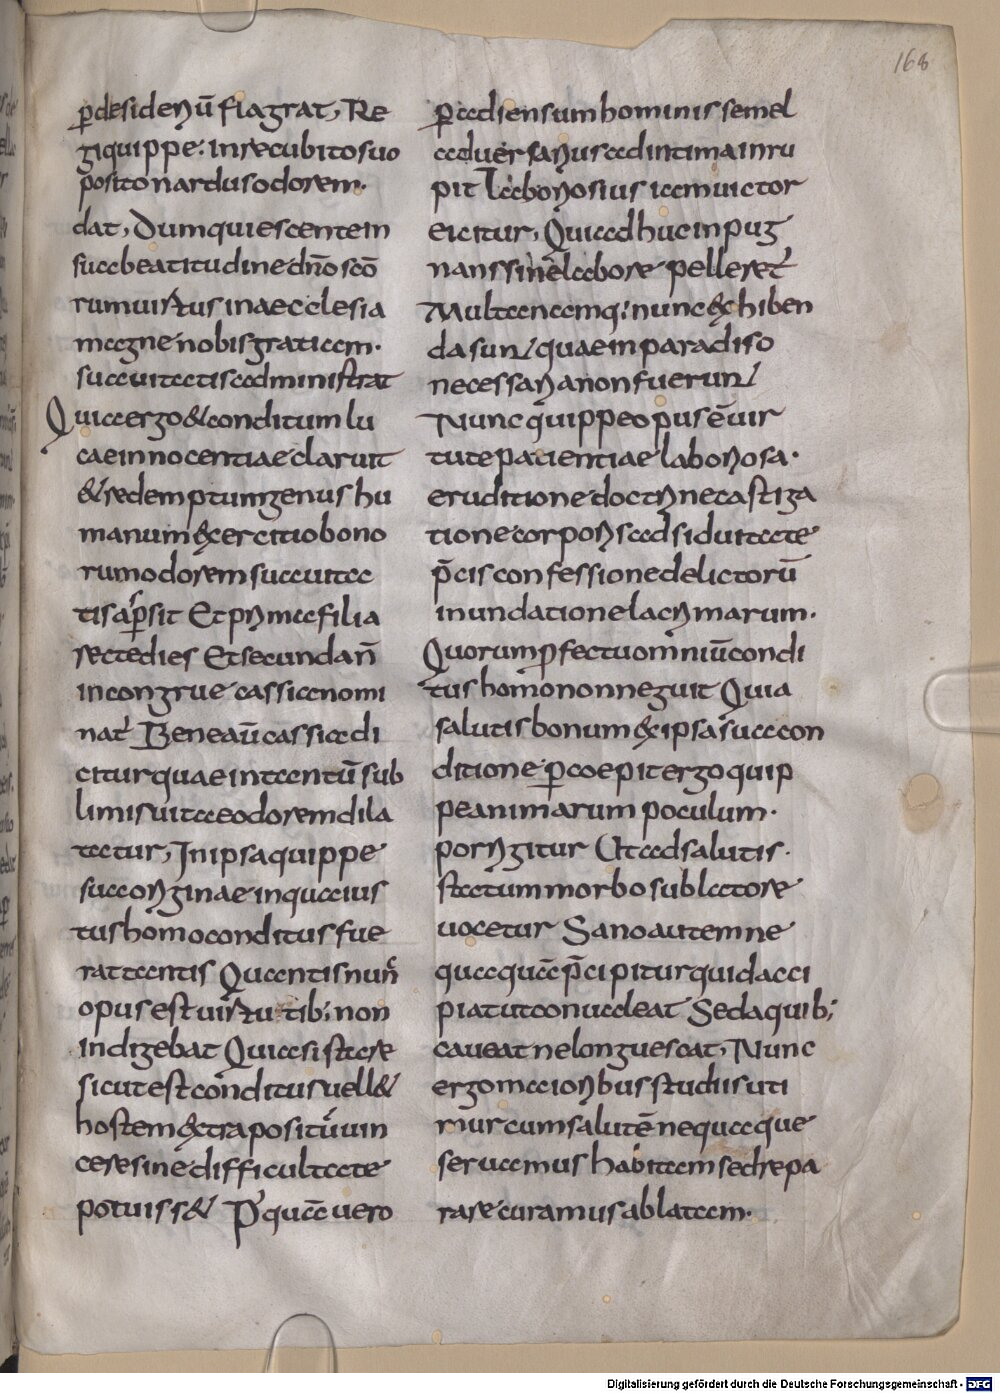 168
p̱desideriū flagrat, Re
gi quippe: in recubito suo
posito nardus odorem·
dat, Dum quiescente in
sua beatitudine dn̄o sc̄o
rum uirtus in aecclesia
magne nobis gratiam·
suauitatis administrat
Quia ergo & conditum lu
cae innocentiae claruit
& redemptum genus hu
manum exercitio bono
rum odorem suauita
tis asp̱sit Et prima filia
recte dies Et secunda n̄
incongrue cassia nomi
nat᾽ Bene aū cassia di
citur quae in tantū sub
limi suitate odorem dila
tatur, In ipsa quippe
sua origine in qua eius
tus homo conditus fue
rat tantis Quantis nun̄
opus est uirtutib; non
indigebat Quia si stare
sicut est conditus uell&
hostem extra positū uin
cere sine difficultate
potuiss& P᾽quā uero
p̱ adsensum hominis semel
aduersarius ad intima inru
pit Laboriosius iam uictor
eicitur, Qui adhuc inpug
nans sine labore pelleret᾽
Multa namq; nunc exhiben
da sunt quae in paradiso
necessaria non fuerunt
Nunc quippe opus ē uir
tute patientiae laboriosa·
eruditione doctrine castiga
tione corporis adsiduitate
p̄cis confessione delictorū
inundatione lacrimarum·
Quorum p̱fectu omniū condi
tus homo non neguit Quia
salutis bonum ex ipsa sua con
ditione p̱coepit ergo quip
pe animarum poculum·
porrigitur Ut ad salutis·
statum morbo sublatore
uocetur Sano autem ne
quaquā p̄cipitur quid acci
piat ut conualeat Sed a quib;
caueat ne longuescat, Nunc
ergo maioribus studiis uti
mur cum salutē nequaque
seruamus habitam sed repa
rare curamus ablatam·
Digitalisierung gefördert durch die Deutsche Forschungsgemeinschaft - DFG